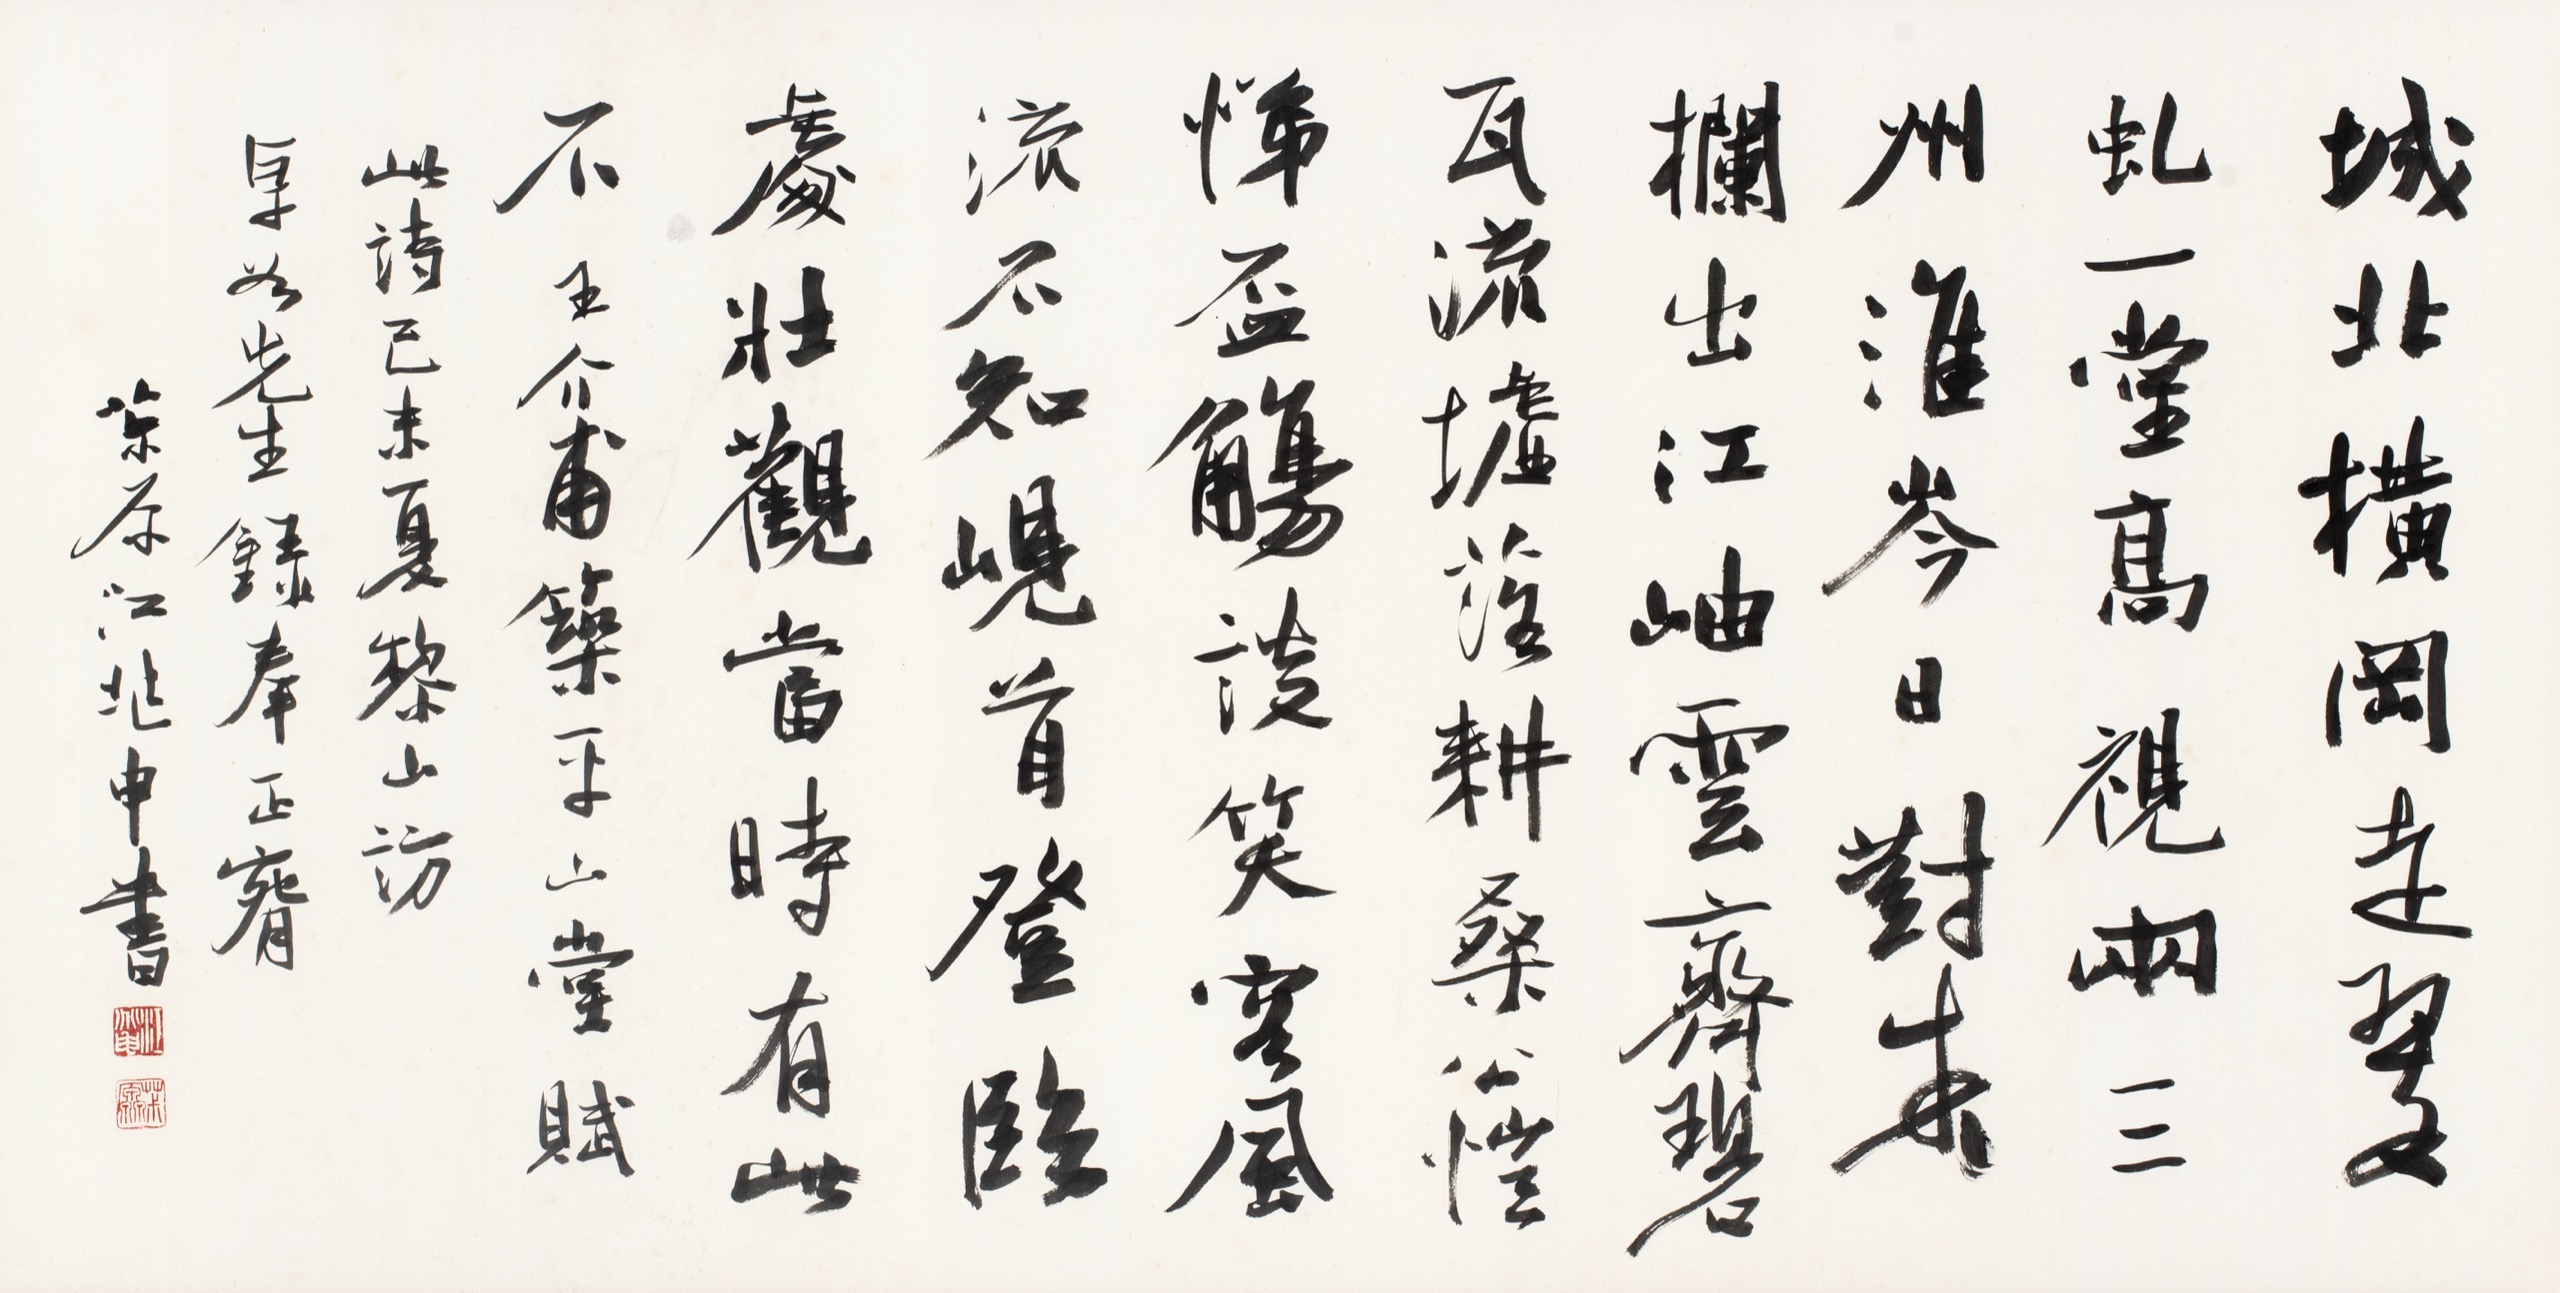 城北橫岡走翠
虬一堂高視兩三
州淮岑日對朱
欄出江岫雲齊碧
瓦流墟落耕桑公愷
悌盃觴談笑客風
流不知峴首登臨
處壯觀當時有此
不 王介甫築平山堂賦
此詩己未夏黎山訪
先生錄奉正
茮原江兆申書